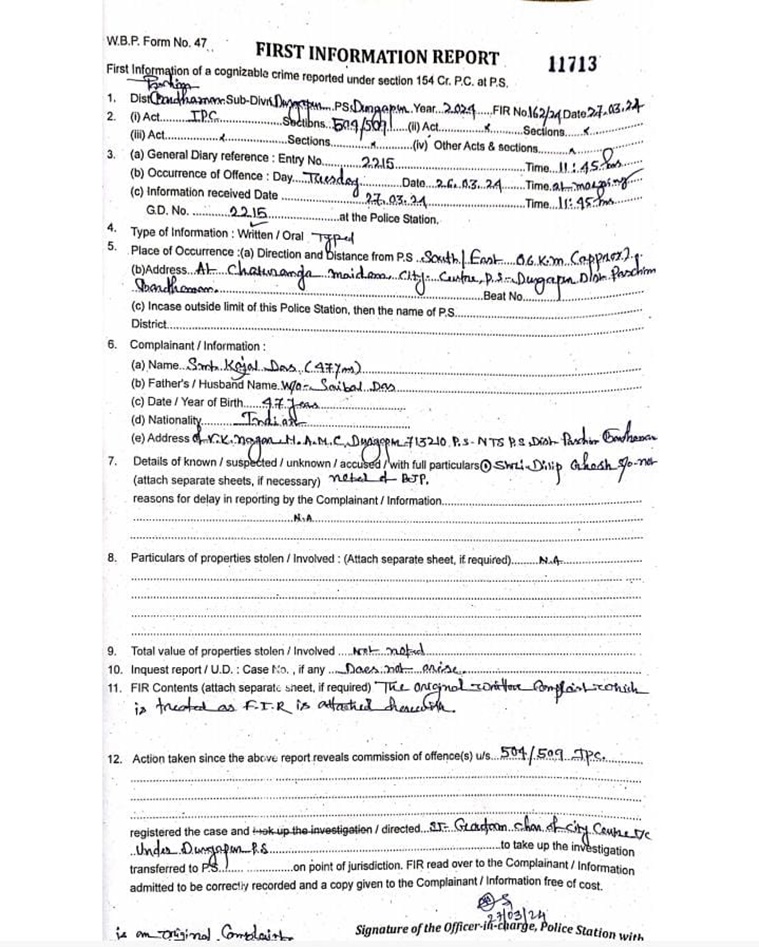 W.B.P. Form No. 47
FIRST INFORMATION REPORT
11713
First Information of a cognizable crime reported under section 154 Cr. P.C. at P.S.
Paschim
1. Dist Bardhaman Sub-Divn Durgapur PS: Durgapur Year 2024 FIR No 162/24 Date 27.03.24
2. (i) Act IPC Sections 504/509 (ii) Act x Sections x
(iii) Act x Sections x (iv) Other Acts & sections x
3. (a) General Diary reference : Entry No. 2215 Time 11:45 hrs
(b) Occurrence of Offence : Day Tuesday Date 26.03.24 Time at morning
(c) Information received Date 27.03.24 Time 11:45 hrs
G.D. No. 2215 at the Police Station.
4. Type of Information : Written / Oral Typed
5. Place of Occurrence :(a) Direction and Distance from P.S South/East 06 K.m (approx).
(b)Address At Chaturanga maidan City Centre, P.S- Durgapur Dist. Paschim
Bardhaman. Beat No.
(c) Incase outside limit of this Police Station, then the name of P.S.
District
6. Complainant / Information :
(a) Name Smt. Kajal Das (47 yrs)
(b) Father's / Husband Name W/o- Saibal Das
(c) Date / Year of Birth 47 years
(d) Nationality Indian
(e) Address of V.K. nagar M.A.M.C, Durgapur 713210 P.S- NTS P.S Dist- Paschim Bardhaman
7. Details of known / suspected / unknown / accused / with full particulars ① Shri Dilip Ghosh S/o-not
(attach separate sheets, if necessary) noted of BJP.
reasons for delay in reporting by the Complainant / Information
N.A
8. Particulars of properties stolen / Involved : (Attach separate sheet, if required) N.A
9. Total value of properties stolen / Involved Not noted
10. Inquest report / U.D. : Case No., if any Does not arise.
11. FIR Contents (attach separate sheet, if required) The original written Complaint which
is treated as F.I.R is attached herewith.
12. Action taken since the above report reveals commission of offence(s) u/s 504/509 IPC.
registered the case and took up the investigation / directed SI- Gautam of City Centre
Under Durgapur P.S to take up the investigation
transferred to P.S. on point of jurisdiction. FIR read over to the Complainant / Information
admitted to be correctly recorded and a copy given to the Complainant / Information free of cost.
27/03/24
Signature of the Officer-in-charge, Police Station with
is an original Complaint